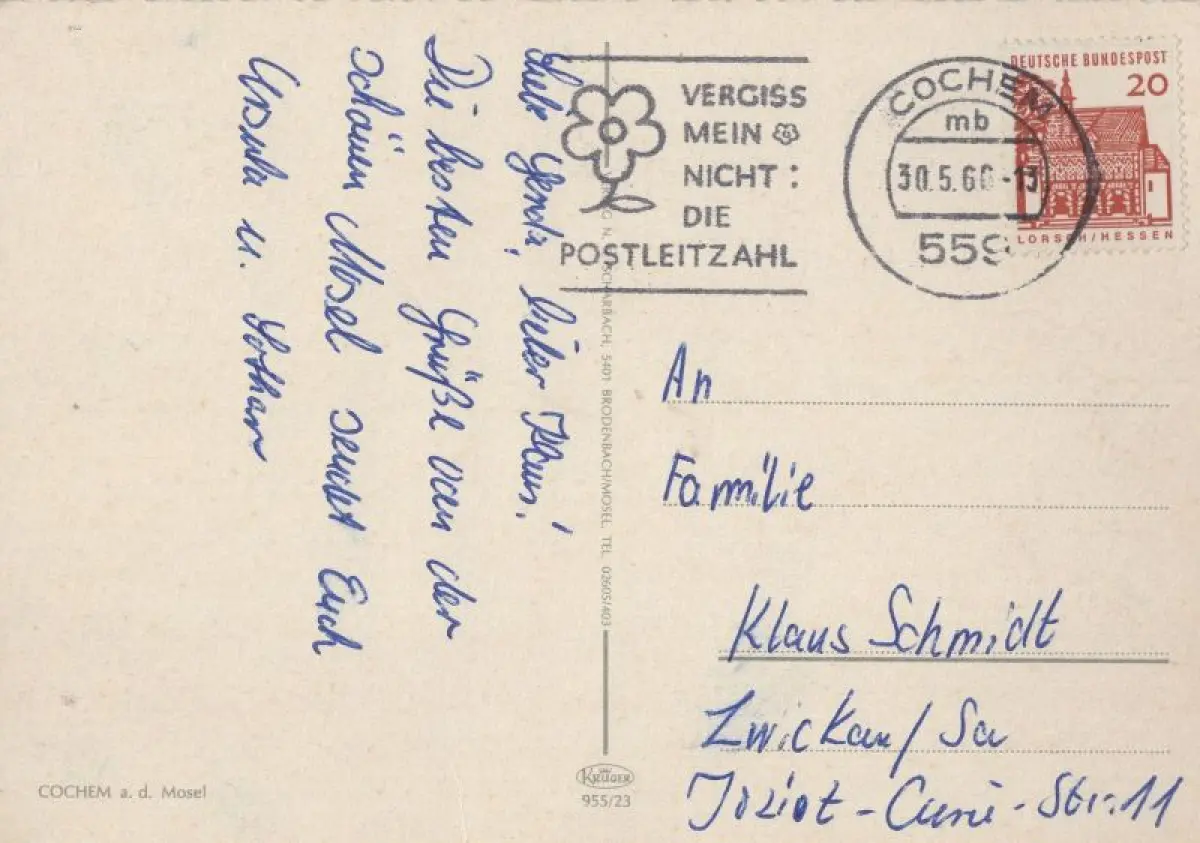 Liebe Gerda, lieber Klaus!
Die besten Grüße von der
schönen Mosel sendet Euch
Ursula u. Lothar
VERGISS
MEIN
NICHT:
DIE
POSTLEITZAHL
COCHEM
mb
30.5.66-13
559
DEUTSCHE BUNDESPOST
20
LORSCH/HESSEN
An
Familie
Klaus Schmidt
Zwickau/Sa
Joliot-Curie-Str. 11
SCHARBACH, 5401 BRODENBACH/MOSEL, TEL. 02605/403
COCHEM a. d. Mosel
KRÜGER
955/23